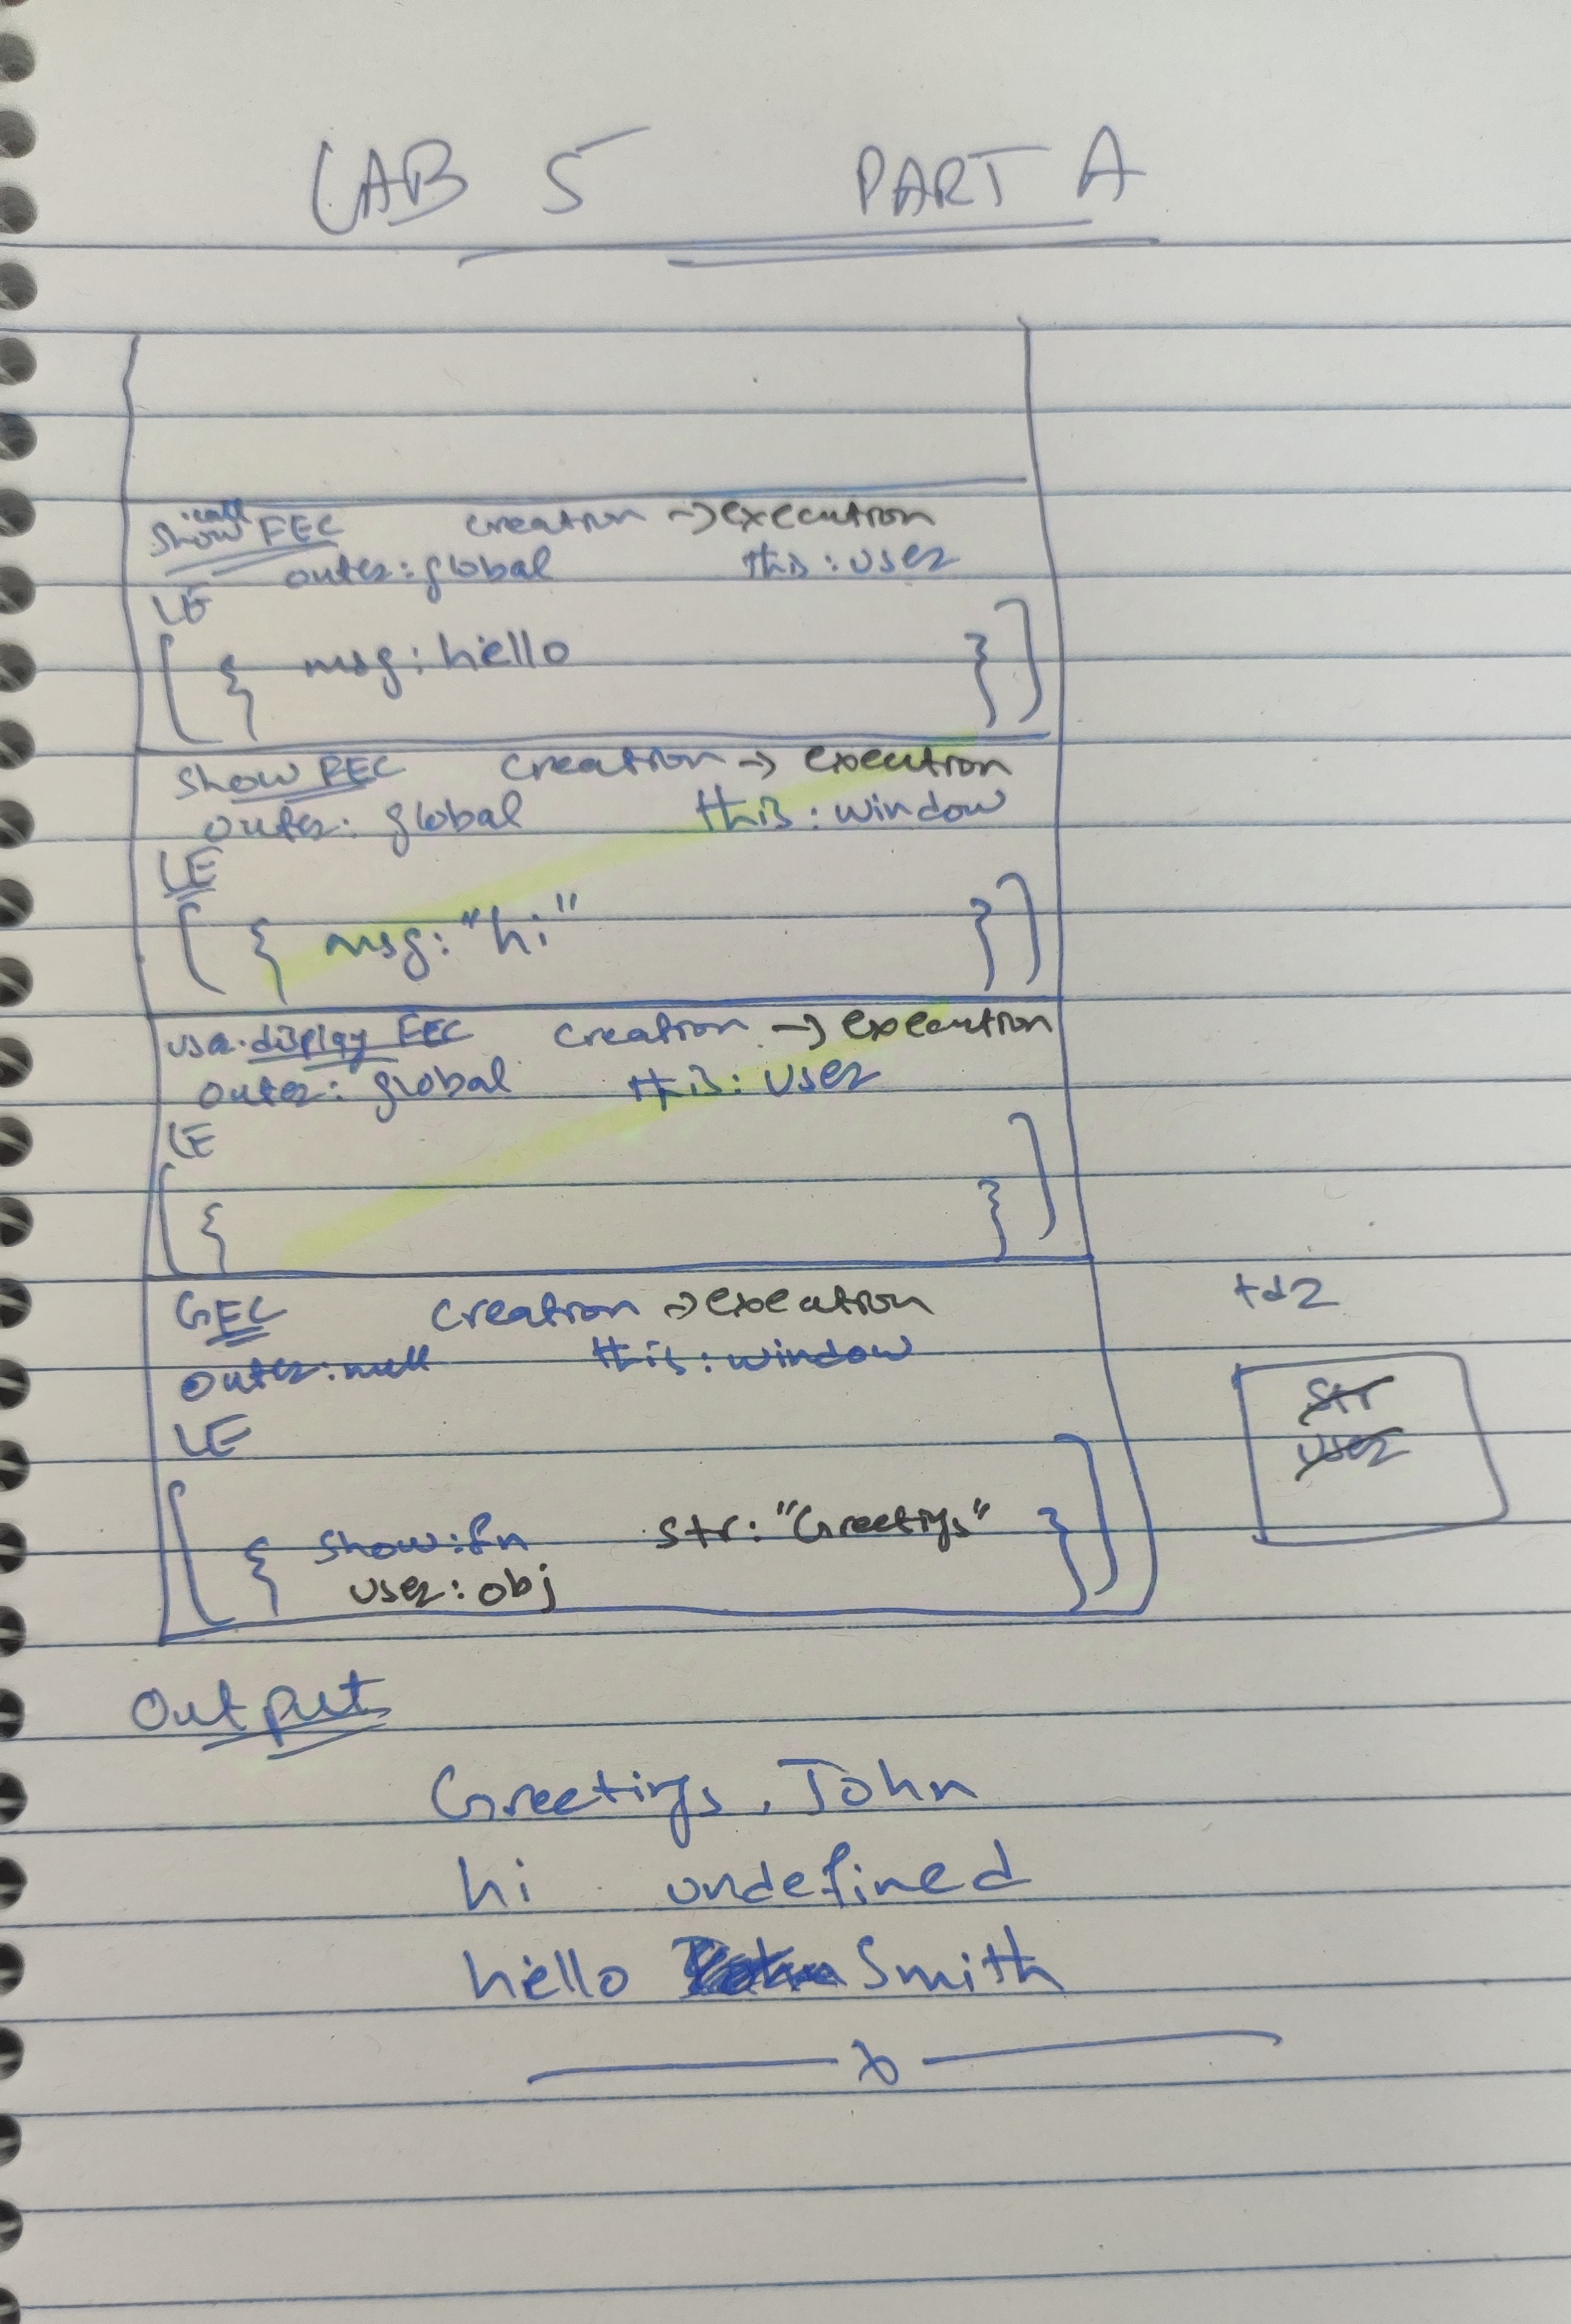 LAB 5 PART A
show.call FEC creation → execution
outer: global this: user
LE
[ { msg: hello } ]
show FEC creation → execution
outer: global this: window
LE
[ { msg: "hi" } ]
user.display FEC creation → execution
outer: global this: user
LE
[ { } ]
GEC creation → execution
outer: null this: window
LE
[ { show: fn str: "Greetings" } ]
user: obj
tdz
str
user
Output
Greetings, John
hi undefined
hello Smith
x